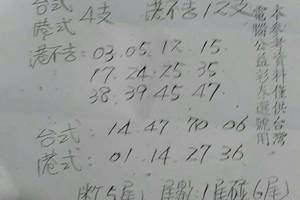 台式
港式 4支 港不告 12支
港不告: 03.05.12.15
17.24.25.35
38.39.45.47.
台式: 14.47.70.06
港式: 01.14.27.36
断5尾 尾數:1尾碰6尾
本參考資料僅供台灣
電腦公益彩券選號用